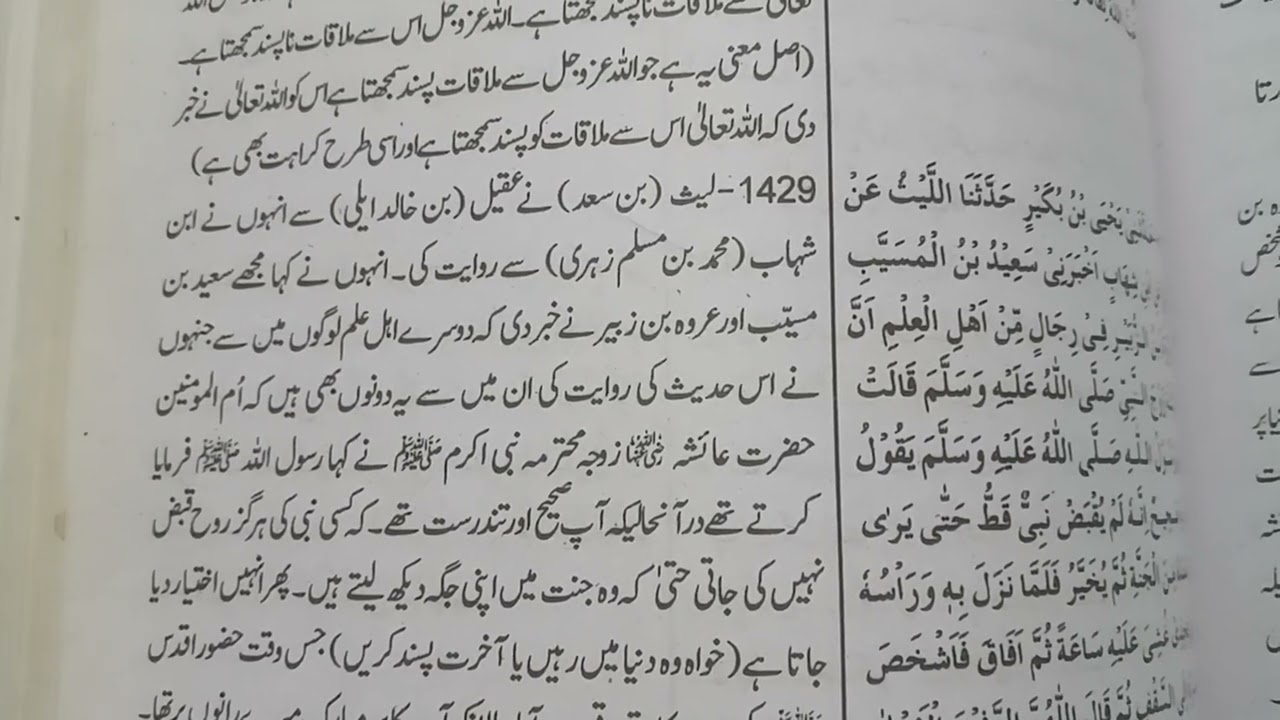 تعالیٰ سے ملاقات ناپسند سمجھتا ہے۔ اللہ عزوجل اس سے ملاقات ناپسند سمجھتا ہے۔
(اصل معنی یہ ہے جو اللہ عزوجل سے ملاقات پسند سمجھتا ہے اس کو اللہ تعالیٰ نے خبر
دی کہ اللہ تعالیٰ اس سے ملاقات کو پسند سمجھتا ہے اور اسی طرح کراہت بھی ہے)
1429- لیث (بن سعد) نے عقیل (بن خالد ایلی) سے انہوں نے ابن
شہاب (محمد بن مسلم زہری) سے روایت کی۔ انہوں نے کہا مجھے سعید بن
مسیّب اور عروہ بن زبیر نے خبر دی کہ دوسرے اہل علم لوگوں میں سے جنہوں
نے اس حدیث کی روایت کی ان میں سے یہ دونوں بھی ہیں کہ اُم المومنین
حضرت عائشہ رضی اللہ عنہا زوجہ محترمہ نبی اکرم ﷺ نے کہا رسول اللہ ﷺ فرمایا
کرتے تھے درآنحالیکہ آپ صحیح اور تندرست تھے۔ کہ کسی نبی کی ہرگز روح قبض
نہیں کی جاتی حتیٰ کہ وہ جنت میں اپنی جگہ دیکھ لیتے ہیں۔ پھر انہیں اختیار دیا
جاتا ہے (خواہ وہ دنیا میں رہیں یا آخرت پسند کریں) جس وقت حضور اقدس
یَحْیَی بْنُ بُکَیْرٍ حَدَّثَنَا اللَّیْثُ عَنْ
شِهَابٍ اَخْبَرَنِیْ سَعِیْدُ بْنُ الْمُسَیَّبِ
فِیْ رِجَالٍ مِّنْ اَهْلِ الْعِلْمِ اَنَّ
النَّبِیِّ صَلَّی اللهُ عَلَیْهِ وَسَلَّمَ قَالَتْ
اللهِ صَلَّی اللهُ عَلَیْهِ وَسَلَّمَ یَقُوْلُ
اِنَّهٗ لَمْ یُقْبَضْ نَبِیٌّ قَطُّ حَتّٰی یَرٰی
الْجَنَّةِ ثُمَّ یُخَیَّرُ فَلَمَّا نَزَلَ بِهٖ وَرَاْسُهٗ
عَلَیْهِ سَاعَةً ثُمَّ اَفَاقَ فَاَشْخَصَ